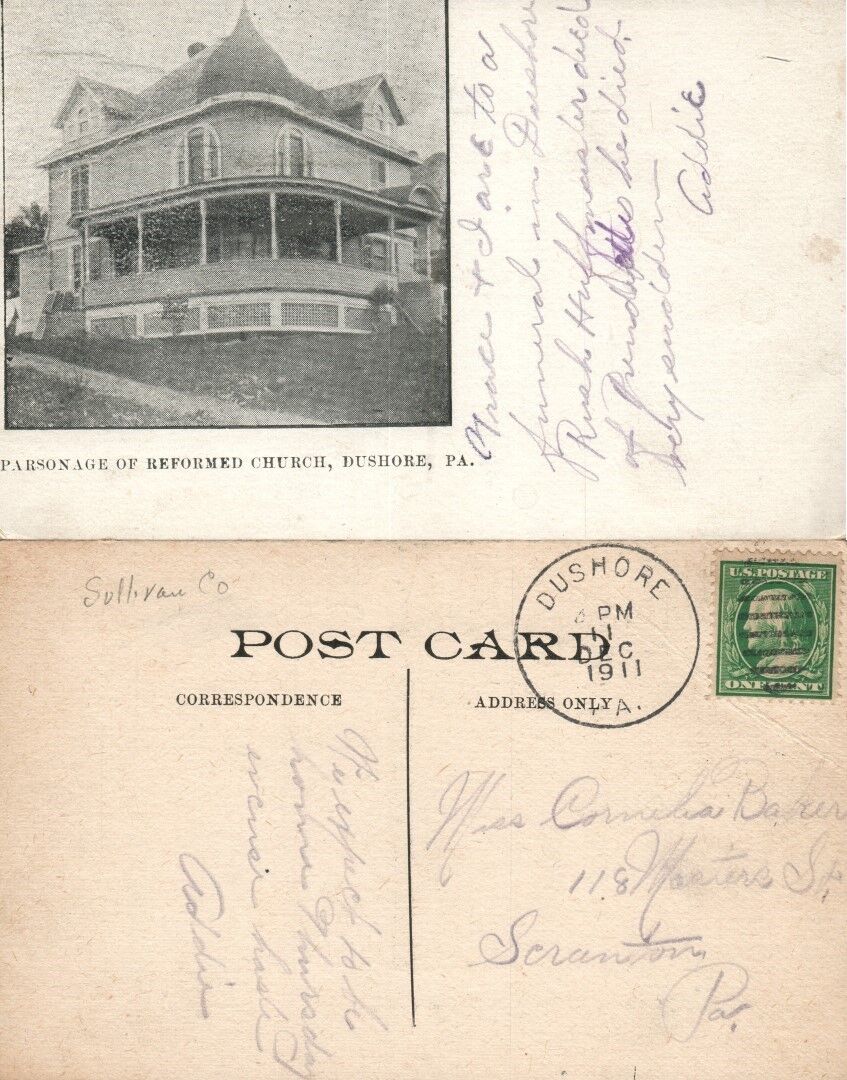 PARSONAGE OF REFORMED CHURCH, DUSHORE, PA.
Grace & I are to a
funeral in Dushore
Rush Huffmaster died
of he died
very sudden
Addie
Sullivan Co
POST CARD
CORRESPONDENCE
ADDRESS ONLY
DUSHORE
PM
11
DEC
1911
PA.
U.S. POSTAGE
ONE CENT
We expect to be
home Thursday
Addie
Miss Cornelia Baker
118 Masters St
Scranton
Pa.